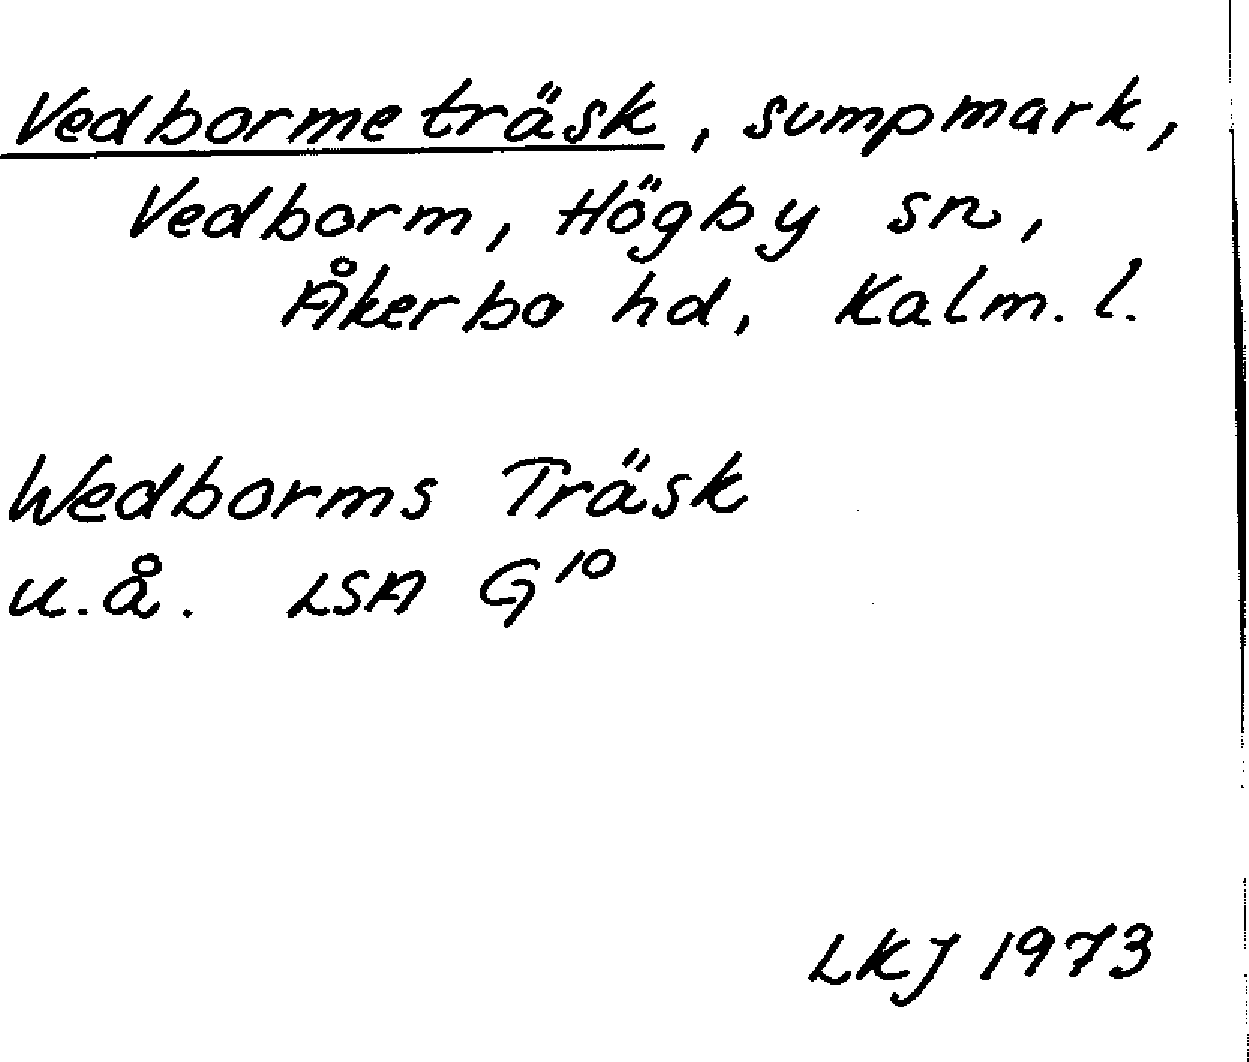 Vedborme träsk, sumpmark,
Vedborm, Högby sn,
Åkerbo hd, Kalm. l.
Wedborms Träsk
u.å. LSA G10
LKJ 1973